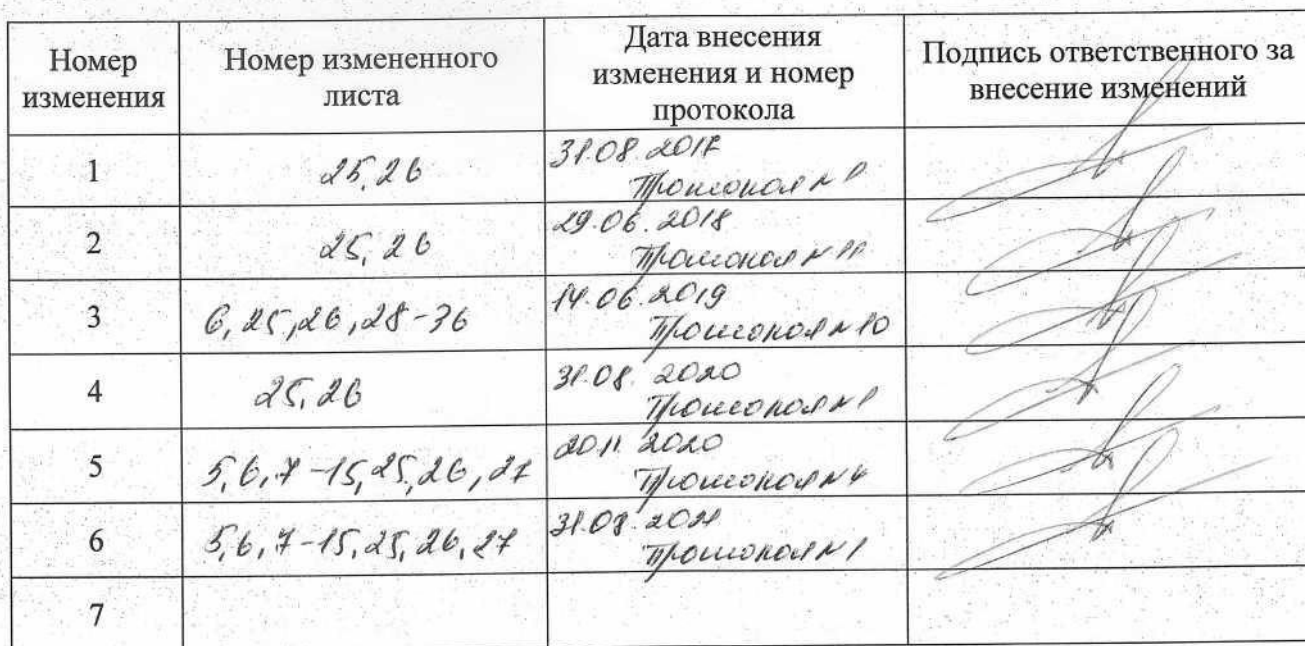 Номер изменения
Номер измененного листа
Дата внесения изменения и номер протокола
Подпись ответственного за внесение изменений
1
25, 26
31.08.2017
Протокол №1
2
25, 26
29.06.2018
Протокол №11
3
6, 25, 26, 28-36
14.06.2019
Протокол №10
4
25, 26
31.08.2020
Протокол №1
5
5, 6, 7-15, 25, 26, 27
20.11.2020
Протокол №4
6
5, 6, 7-15, 25, 26, 27
31.08.2021
Протокол №1
7